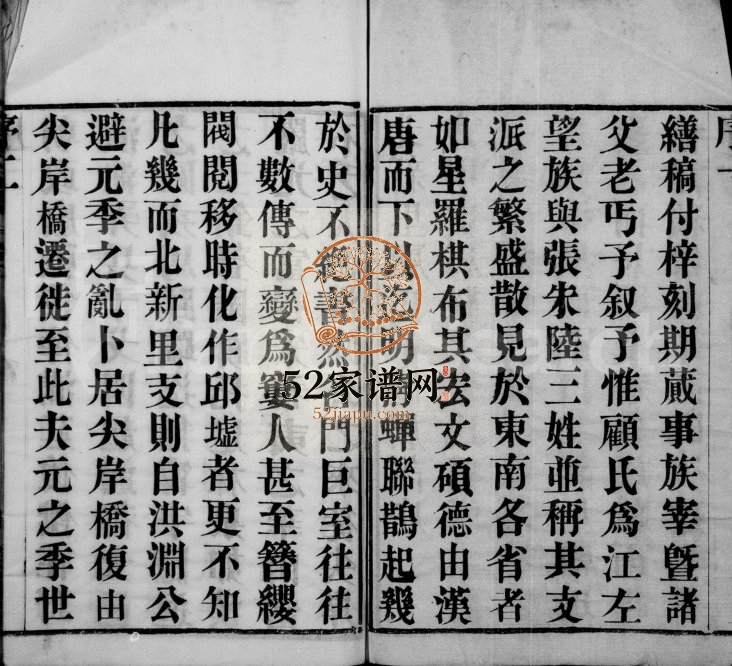 序一
繕稿付梓刻期蕆事族宰暨諸
父老丐予叙予惟顧氏爲江左
望族與張朱陸三姓並稱其支
派之繁盛散見於東南各省者
如星羅棋布其宏文碩德由漢
唐而下以迄明蟬聯鵲起幾
於史不絕書然門巨室往往
不數傳而變爲窶人甚至簪纓
閥閱移時化作邱墟者更不知
凡幾而北新里支則自洪淵公
避元季之亂卜居尖岸橋復由
尖岸橋遷徙至此夫元之季世
序二
52家谱网
52jiapu.com